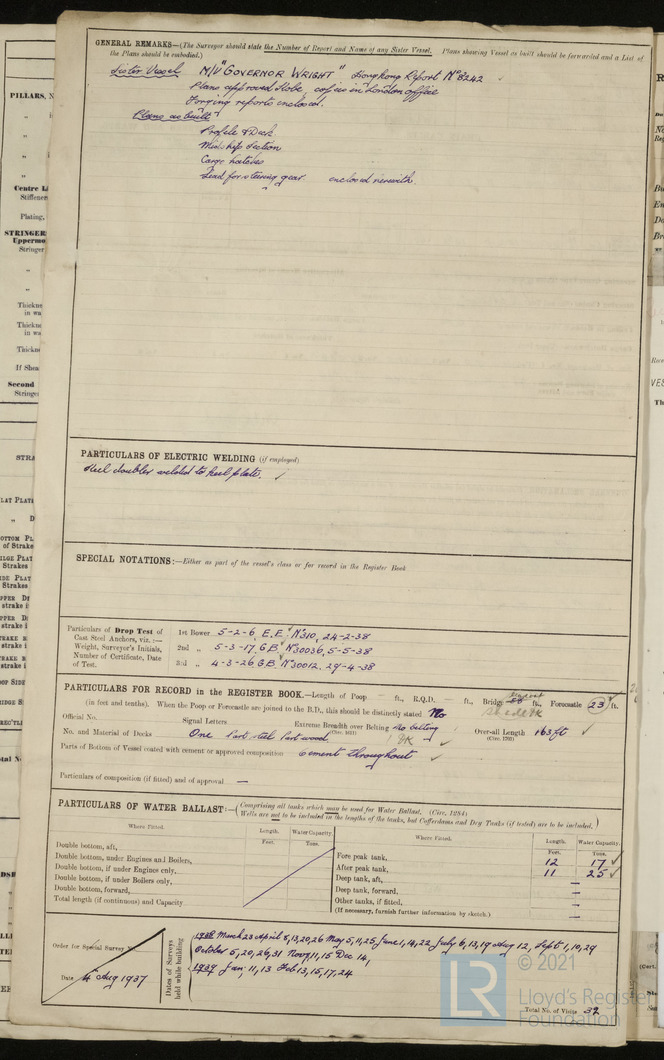 GENERAL REMARKS—(The Surveyor should state the Number of Report and Name of any Sister Vessel. Plans showing Vessel as built should be forwarded and a List of
the Plans should be embodied.)
Sister Vessel M/V "GOVERNOR WRIGHT" Hongkong Report No 8242
Plans approved Kobe, copies in London office
Forging reports enclosed.
Plans as built
Profile & Deck
Midship Section
Cargo hatches
Lead for steering gear enclosed herewith.
PARTICULARS OF ELECTRIC WELDING (if employed)
Heel doubler welded to keel plate.
SPECIAL NOTATIONS:—Either as part of the vessel's class or for record in the Register Book
Particulars of Drop Test of
Cast Steel Anchors, viz.:—
Weight, Surveyor's Initials,
Number of Certificate, Date
of Test.
1st Bower 5-2-6, E.E. No 310, 24-2-38
2nd „ 5-3-17, G.B. No 30036, 5-5-38
3rd „ 4-3-26, G.B. No 30012, 29-4-38
PARTICULARS FOR RECORD in the REGISTER BOOK.—Length of Poop — ft., R.Q.D. — ft., Bridge ft., Forecastle 23 ft.
(in feet and tenths). When the Poop or Forecastle are joined to the B.D., this should be distinctly stated No
Official No. Signal Letters Extreme Breadth over Belting No belting Over-all Length 163 ft
(Circ. 1611) (Circ. 1703)
No. and Material of Decks One Part steel Part wood
Parts of Bottom of Vessel coated with cement or approved composition Cement throughout
Particulars of composition (if fitted) and of approval —
PARTICULARS OF WATER BALLAST:—(Comprising all tanks which may be used for Water Ballast. (Circ. 1284)
Wells are not to be included in the lengths of the tanks, but Cofferdams and Dry Tanks (if tested) are to be included.)
Where Fitted. Length. Water Capacity. Where Fitted. Length. Water Capacity.
Feet. Tons. Feet. Tons.
Double bottom, aft, Fore peak tank, 12 17
Double bottom, under Engines and Boilers, After peak tank, 11 25
Double bottom, if under Engines only, Deep tank, aft, —
Double bottom, if under Boilers only, Deep tank, forward, —
Double bottom, forward, Other tanks, if fitted, —
Total length (if continuous) and Capacity (If necessary, furnish further information by sketch.) —
Order for Special Survey No.
Date 4th Aug 1937
Dates of Surveys
held while building
1938 March 23 April 8, 13, 20, 26 May 5, 11, 25, June 1, 14, 22 July 6, 13, 19 Aug 12, Sept 1, 10, 29
October 5, 20, 26, 31 Nov 9, 11, 15 Dec 14,
1939 Jan, 11, 13 Feb 13, 15, 17, 24
Total No. of Visits 32
© 2021
LR
Lloyd's Register
Foundation